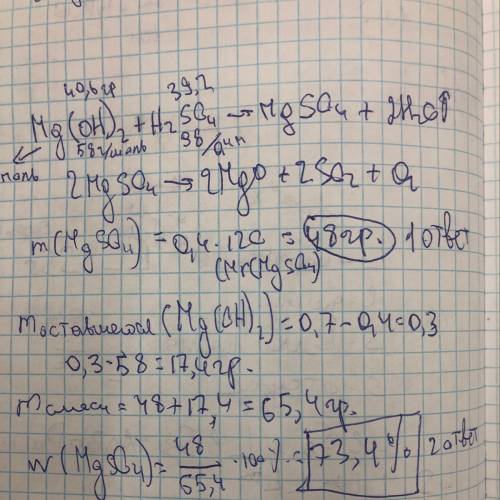 40,6гр 39,2
Mg(OH)2 + H2SO4 → MgSO4 + 2H2O↑
58г/моль 98
моль
2MgSO4 → 2MgO + 2SO2 + O2
m(MgSO4) = 0,4·120 = 48гр. 1 ответ
(Mr(MgSO4)
m оставшегося (Mg(OH)2) = 0,7-0,4=0,3
0,3·58=17,4гр.
m смеси = 48+17,4=65,4гр.
w(MgSO4) = 48/65,4 ·100% = 73,4% 2 ответ